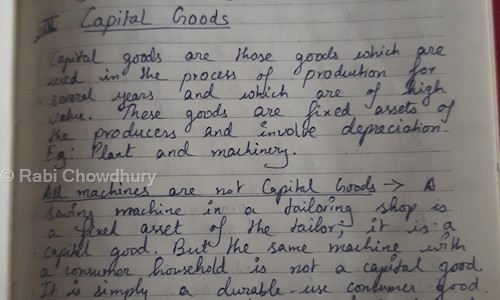 IV Capital Goods
Capital goods are those goods which are
used in the process of production for
several years and which are of high
value. These goods are fixed assets of
the producers and involve depreciation.
Eg: Plant and machinery.
© Rabi Chowdhury
All machines are not Capital Goods → A
sewing machine in a tailoring shop is
a fixed asset of the tailor; it is a
capital good. But the same machine with
a consumer household is not a capital good.
It is simply a durable-use consumer good.